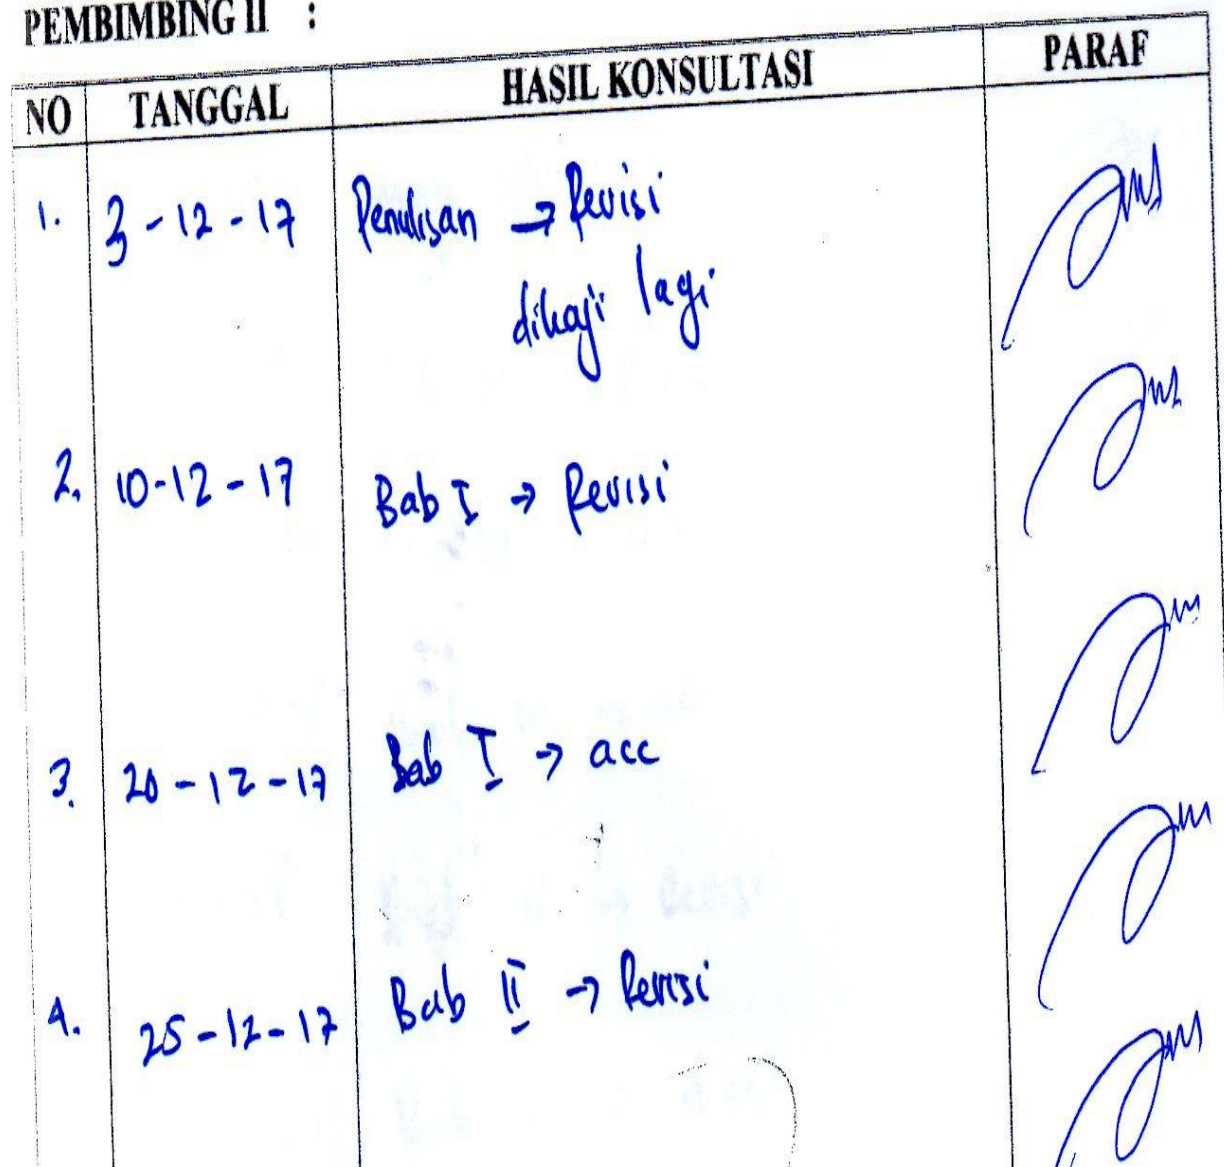 PEMBIMBING II :
NO TANGGAL HASIL KONSULTASI PARAF
1. 3-12-17 Penulisan → Revisi
dikaji lagi
2. 10-12-17 Bab I → Revisi
3. 20-12-17 Bab I → acc
4. 25-12-17 Bab II → Revisi